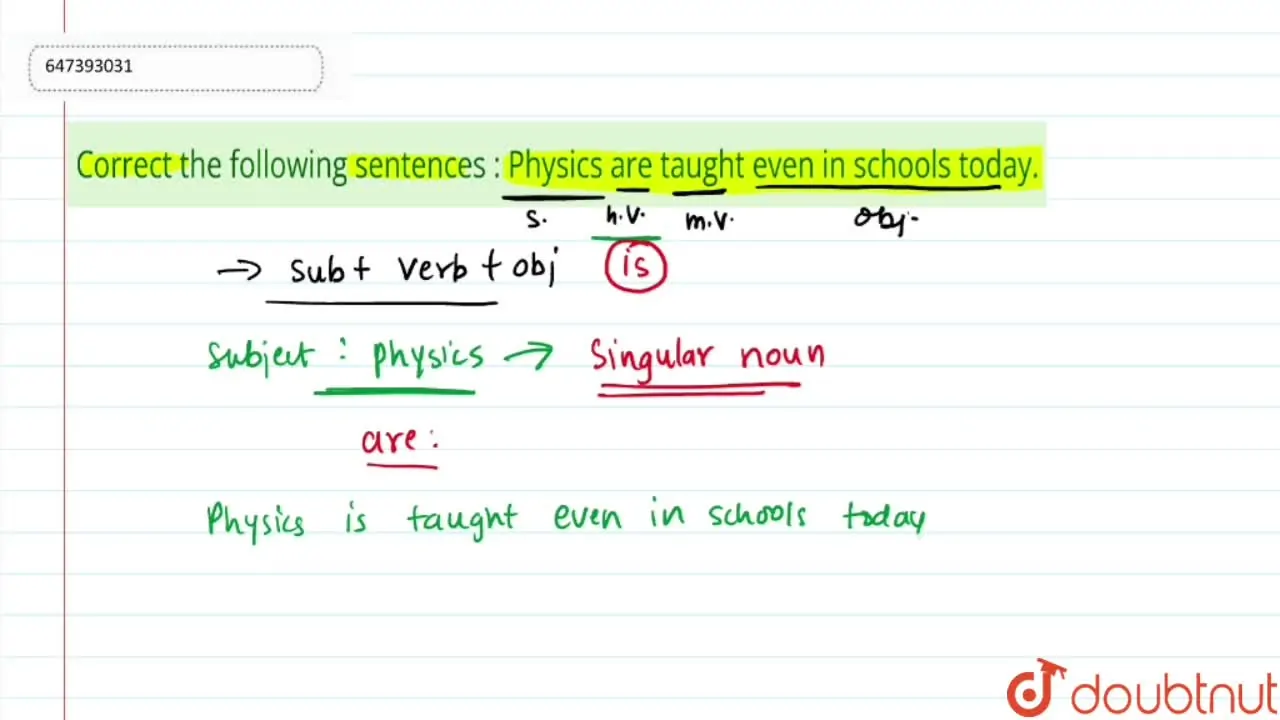 647393031
Correct the following sentences : Physics are taught even in schools today.
s. h.v. m.v. obj.
→ sub + verb + obj is
subject : physics → Singular noun
are :
Physics is taught even in schools today
doubtnut